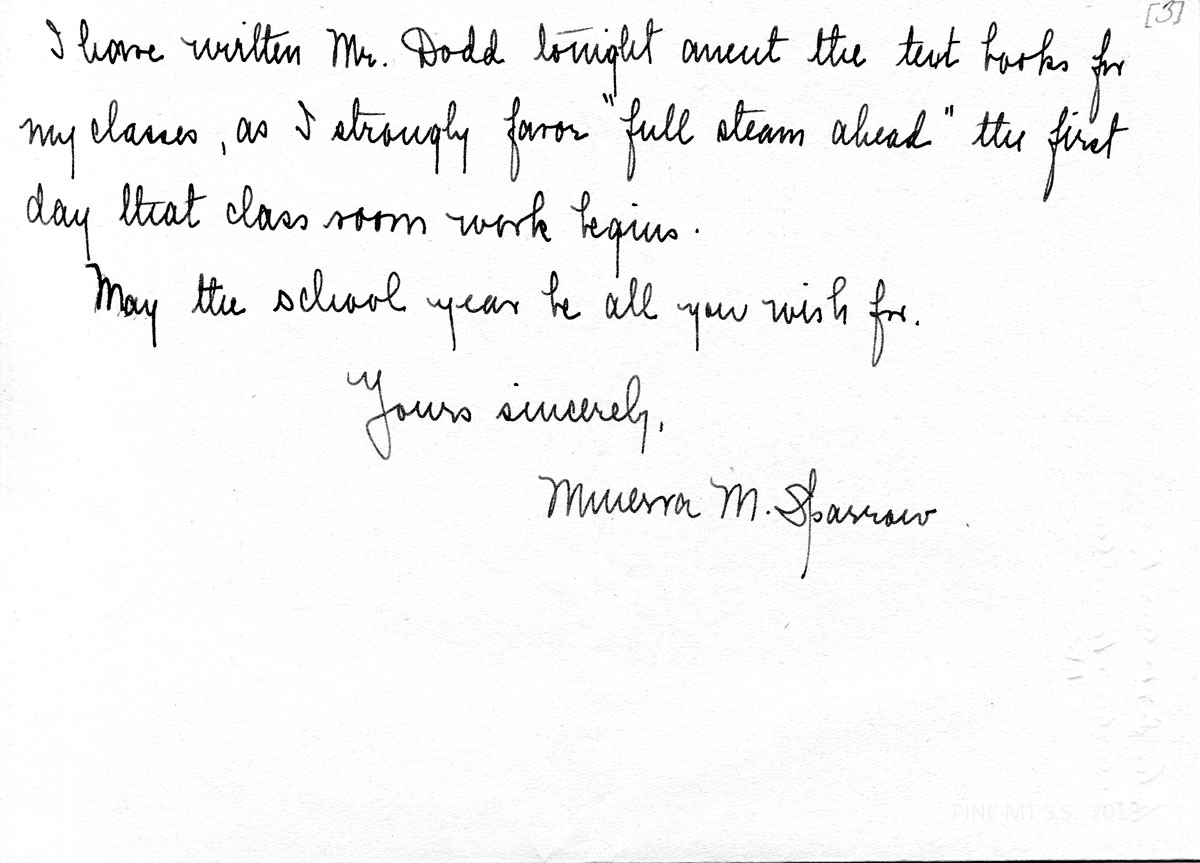 [3]
I have written Mr. Dodd tonight anent the text books for
my classes, as I strongly favor "full steam ahead" the first
day that class room work begins.
May the school year be all you wish for.
Yours sincerely,
Minerva M. Sparrow
PINE MT S.S. 2018